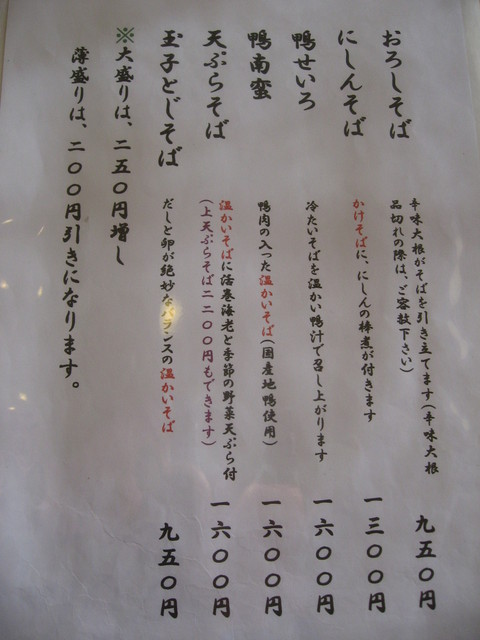 おろしそば 辛味大根がそばを引き立てます(辛味大根
品切れの際は、ご容赦下さい) 九五〇円
にしんそば かけそばに、にしんの棒煮が付きます 一三〇〇円
鴨せいろ 冷たいそばを温かい鴨汁で召し上がります 一六〇〇円
鴨南蛮 鴨肉の入った温かいそば(国産地鴨使用) 一六〇〇円
天ぷらそば 温かいそばに活巻海老と季節の野菜天ぷら付
(上天ぷらそば二二〇〇円もできます) 一六〇〇円
玉子とじそば だしと卵が絶妙なバランスの温かいそば 九五〇円
※大盛りは、二五〇円増し
薄盛りは、二〇〇円引きになります。